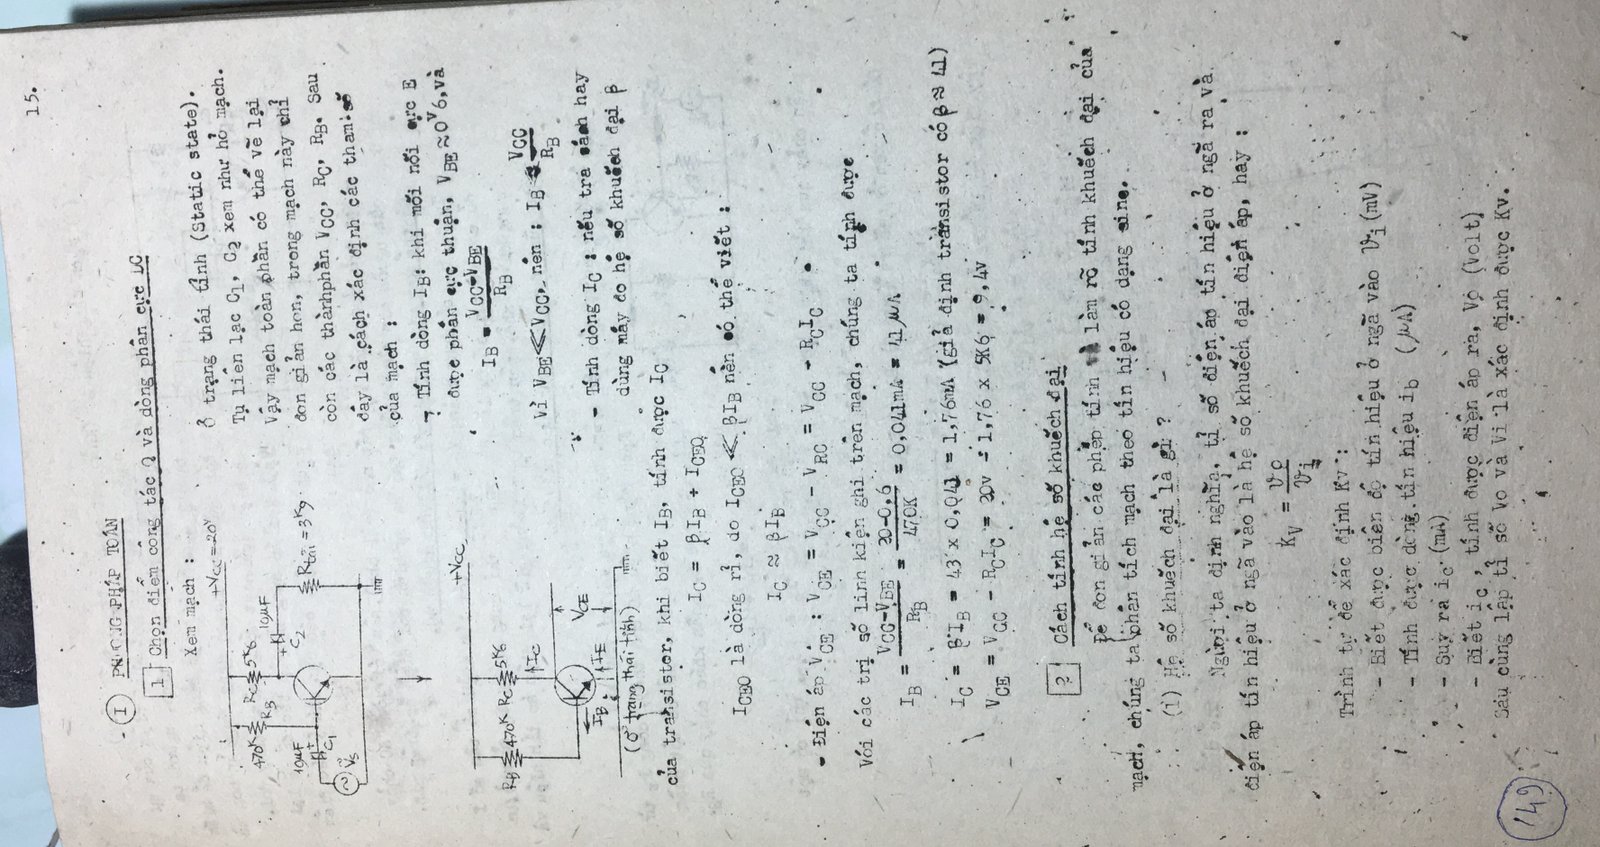 15.
I PHƯƠNG PHÁP TOÁN
1 Chọn điểm công tác Q và dòng phân cực DC
Xem mạch :
+Vcc=20V
470K
RB
Rc
5K6
10µF
C2
+
Rtải=3K9
10µF
+
C1
Vs
Ở trạng thái tĩnh (Static state).
Tụ liên lạc C1, C2 xem như hở mạch.
Vậy mạch toàn phần có thể vẽ lại
đơn giản hơn, trong mạch này chỉ
còn các thành phần VCC, RC, RB. Sau
đây là cách xác định các tham số
của mạch :
- Tính dòng IB: khi mối nối cực E
được phân cực thuận, VBE ≈ 0V6, và
IB = VCC-VBE / RB
Vì VBE ≪ VCC, nên : IB ≈ VCC / RB
- Tính dòng IC : nếu tra sách hay
dùng máy đo hệ số khuếch đại β
+Vcc
RB
470K
Rc
5K6
IC
IB
IE
VCE
(ở trạng thái tĩnh)
của transistor, khi biết IB, tính được IC
IC = βIB + ICEO
ICEO là dòng rỉ, do ICEO ≪ βIB nên có thể viết :
IC ≈ βIB
- Điện áp VCE : VCE = VCC - VRC = VCC - RCIC
Với các trị số linh kiện ghi trên mạch, chúng ta tính được
IB = VCC-VBE / RB = 20-0,6 / 470K = 0,041mA = 41µA
IC = βIB = 43 x 0,041 = 1,76mA (giả định transistor có β ≈ 41)
VCE = VCC - RCIC = 20v - 1,76 x 5K6 = 9,4v
2 Cách tính hệ số khuếch đại
Để đơn giản các phép tính và làm rõ tính khuếch đại của
mạch, chúng ta phân tích mạch theo tín hiệu có dạng sine.
(i) Hệ số khuếch đại là gì ?
Người ta định nghĩa, tỉ số điện áp tín hiệu ở ngã ra và
điện áp tín hiệu ở ngã vào là hệ số khuếch đại điện áp, hay :
KV = vo / vi
Trình tự để xác định KV :
- Biết được biên độ tín hiệu ở ngã vào vi (mV)
- Tính được dòng tín hiệu ib (µA)
- Suy ra ic (mA)
- Biết ic, tính được điện áp ra, Vo (Volt)
Sau cùng lập tỉ số Vo và Vi là xác định được Kv.
149